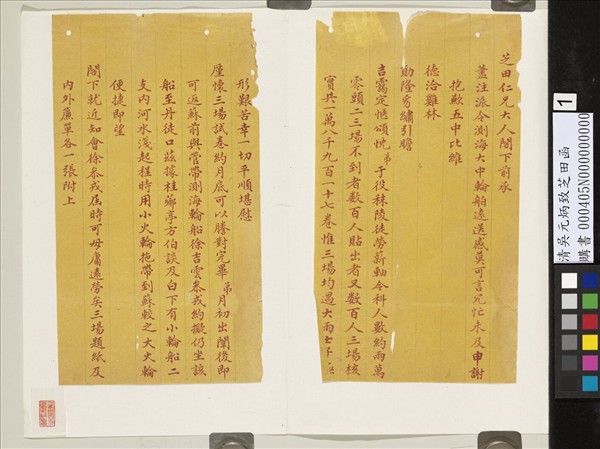 芝田仁兄大人閣下前承
藎注派令測海大中輪船遠送感莫可言冗忙未及申謝
抱歉五中比維
德洽雞林
勛隆
繡引瞻
吉靄定愜頌忱弟于役秣陵徒勞薪軸今科人數約兩萬
零頭二三場不到者數百人貼出者又數百人三場核
實共一萬八千九百一十七卷惟三場均遇大雨士子
形艱苦幸一切平順堪慰
廑懷三場試卷約月底可以謄對完畢弟月初出闈後即
可返蘇前與管帶測海輪船徐吉雲參戎約擬仍坐該
船至丹徒口茲據桂薌亭方伯談及白下有小輪船二
支內河水淺起程時用小火輪拖帶到蘇較之大火輪
便捷即望
閣下就近知會徐參戎屆時可毋庸遠勞矣三場題紙及
內外簾單各一張附上
清吳元炳致芝田函
購書 000405X00000000000
1